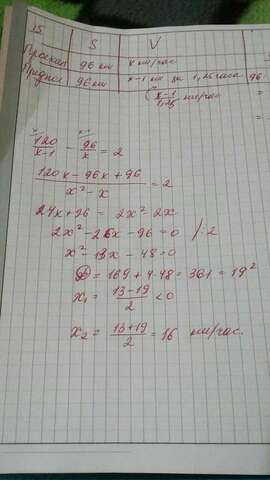 S V
Проехал 96 км x км/час
96 км x-1 км за 1,25 часа 96
x-1/1,25 км/час
120/x-1 - 96/x = 2
120x-96x+96/x²-x = 2
24x+96 = 2x²-2x
2x²-26x-96=0 /:2
x²-13x-48=0
D=169+4·48=361=19²
x₁ = 13-19/2 <0
x₂ = 13+19/2 = 16 км/час.